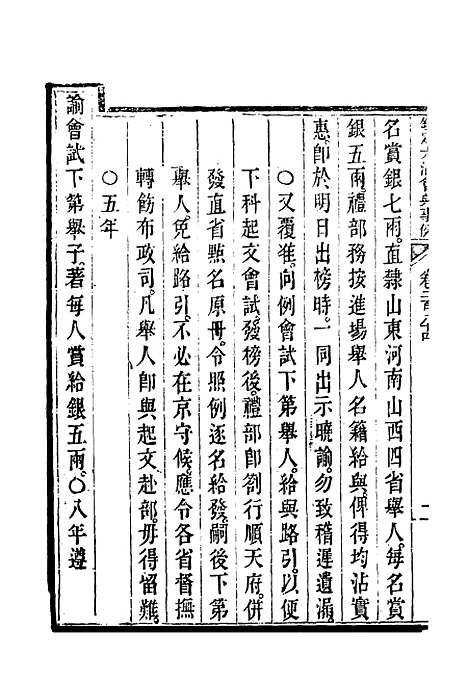 名賞銀七兩。直隸山東河南山西四省舉人。每名賞
銀五兩。禮部務按進場舉人名籍給與。俾得均沾實
惠。卽於明日出榜時。一同出示曉諭。勿致稽遲遺漏。
〇又覆准。向例會試下第舉人。給與路引。以便
下科起文會試發榜後。禮部卽劄行順天府。併
發直省點名原冊。令照例逐名給發。嗣後下第
舉人。免給路引。不必在京守候。應令各省督撫
轉飭布政司。凡舉人卽與起文赴部。毋得留難。
〇五年
諭會試下第舉子。著每人賞給銀五兩。〇八年遵